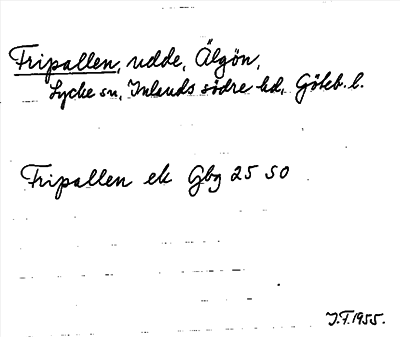 Fripallen, udde, Älgön,
Lycke sn, Inlands södre hd, Göteb. l.
Fripallen ek Gbg 25 SO
J.F. 1955.